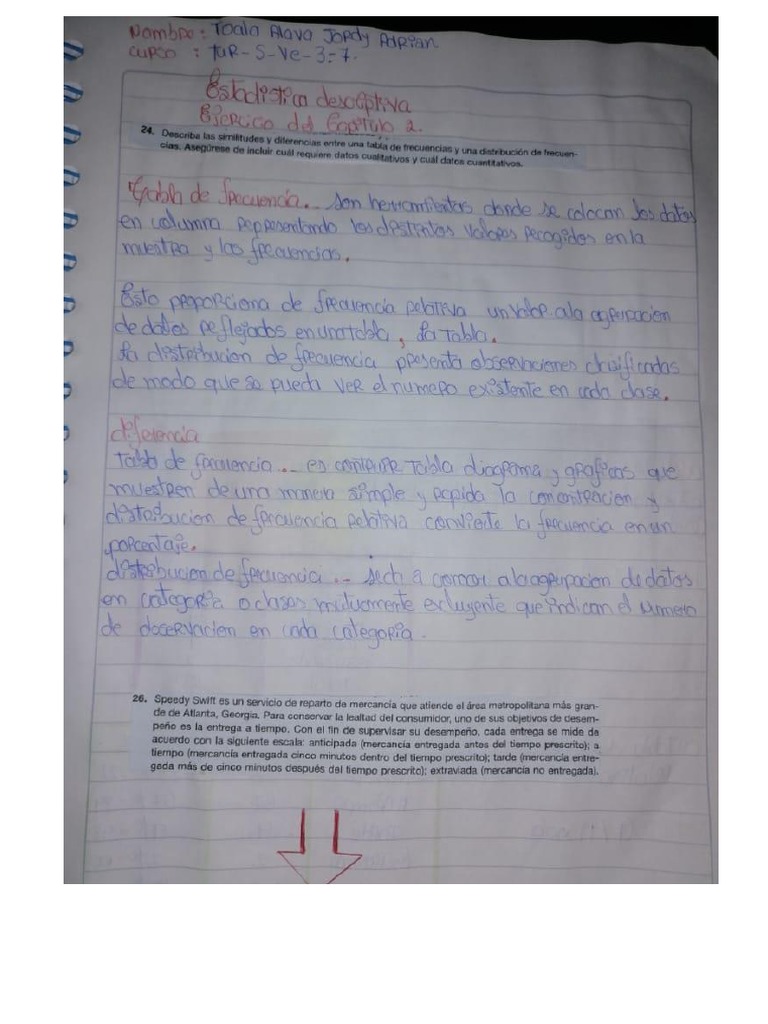 Nombre: Toala Alava Jordy Adrian
curso : tuR-S-Ve-3-7.
Estadistica descriptiva
Ejercicio del Capitulo 2.
24. Describa las similitudes y diferencias entre una tabla de frecuencias y una distribución de frecuen-
cias. Asegúrese de incluir cuál requiere datos cualitativos y cuál datos cuantitativos.
tabla de frecuencia... son herramientas donde se colocan los datos
en columna representando los distintos valores recogidos en la
muestra y las frecuencias.
Esto proporciona de frecuencia relativa un valor a la agrupacion
de datos reflejados en una tabla, la tabla.
la distribucion de frecuencia presenta observaciones clasificadas
de modo que se pueda ver el numero existente en cada clase.
diferencia
tabla de frecuencia ... es tabla diagrama y graficas que
muestren de una manera simple y rapida la concentracion y
distribucion de frecuencia relativa convierte la frecuencia en un
porcentaje.
distribucion de frecuencia ... a conocer a la agrupacion de datos
en categoria o clases mutuamente excluyente que indican el numero
de observacion en cada categoria.
26. Speedy Swift es un servicio de reparto de mercancía que atiende el área metropolitana más gran-
de de Atlanta, Georgia. Para conservar la lealtad del consumidor, uno de sus objetivos de desem-
peño es la entrega a tiempo. Con el fin de supervisar su desempeño, cada entrega se mide de
acuerdo con la siguiente escala: anticipada (mercancía entregada antes del tiempo prescrito); a
tiempo (mercancía entregada cinco minutos dentro del tiempo prescrito); tarde (mercancía entre-
gada más de cinco minutos después del tiempo prescrito); extraviada (mercancía no entregada).